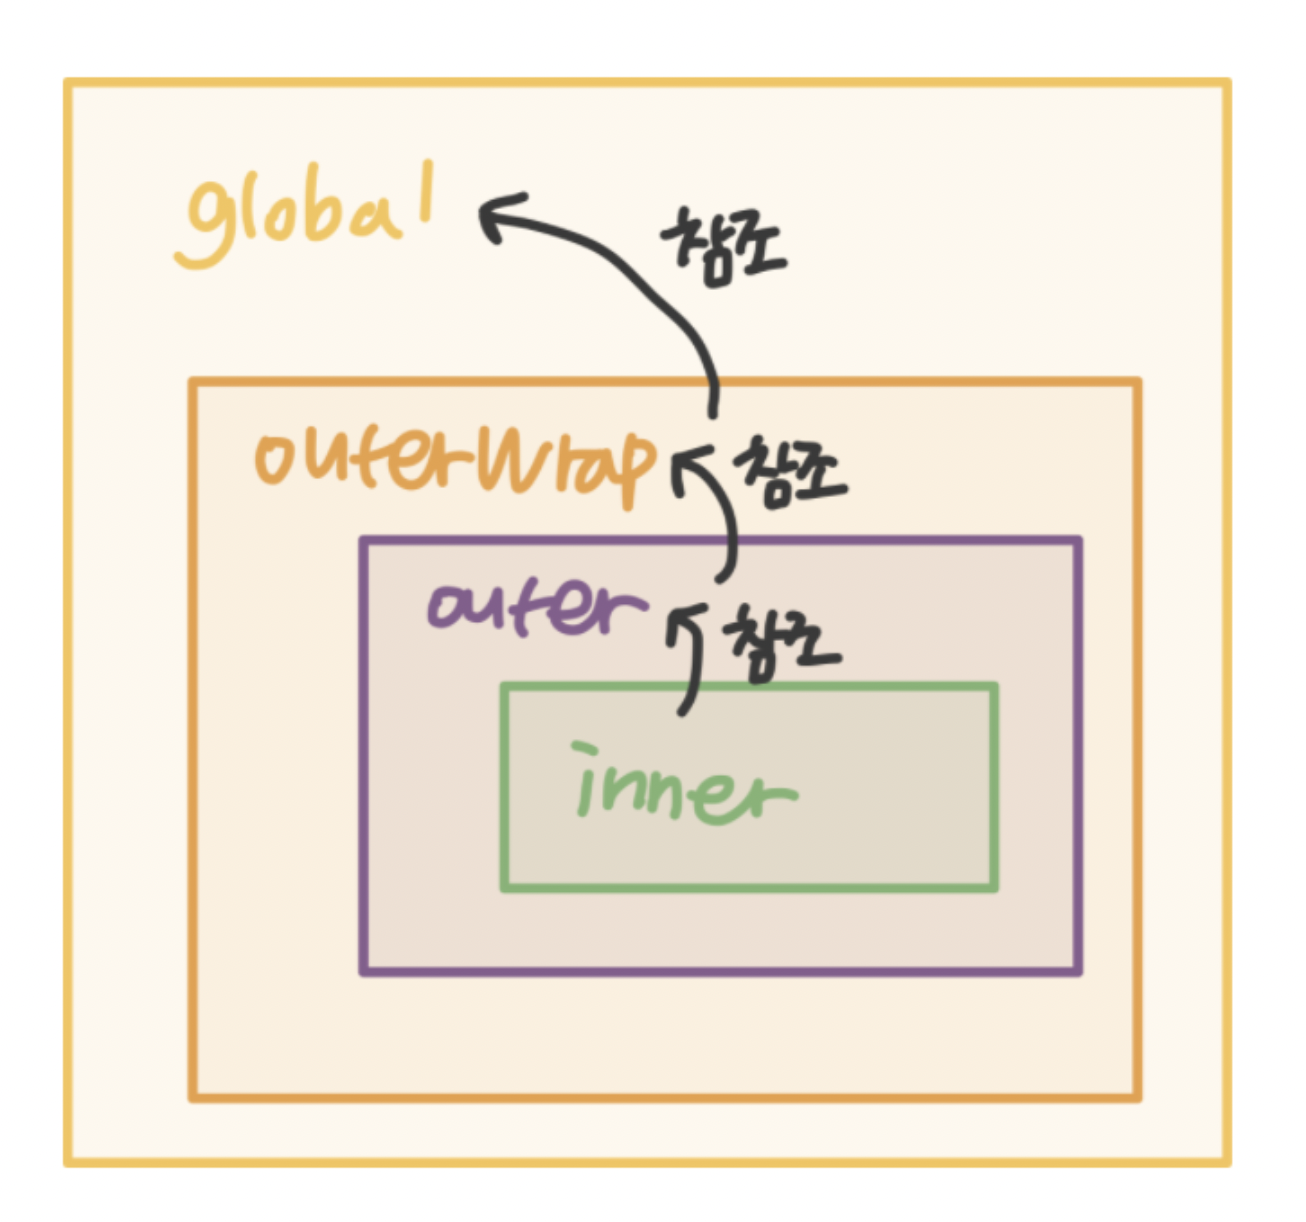 global
참조
outerWrap
참조
outer
참조
inner